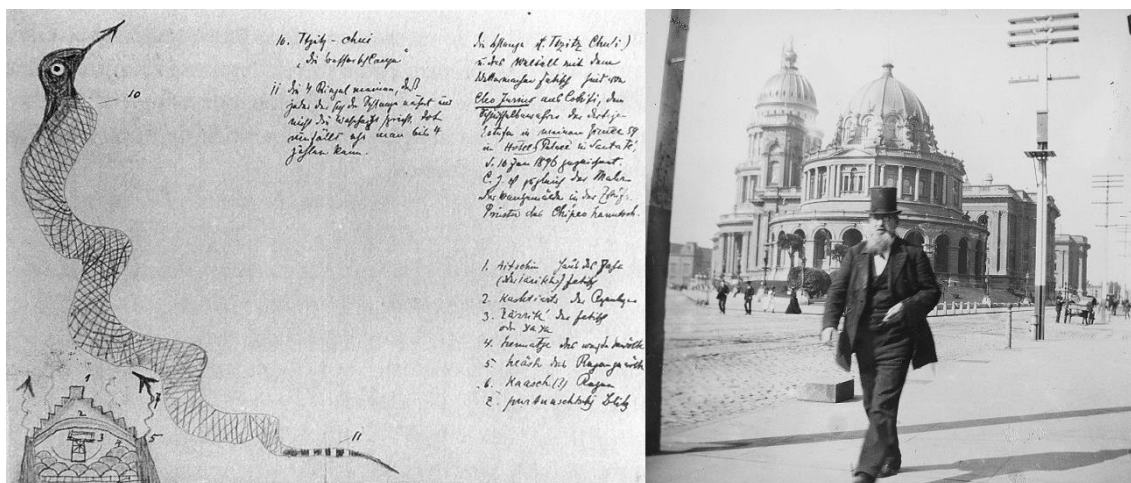 10
10. Tzitz-chui
„die Wasserschlange"
11 die 4 Ringel meinen, daß
jeder der sich der Schlange nähert und
nicht die Wahrheit spricht, tot
umfällt ehe man bis 4
zählen kann.
die Schlange Tzitz Chui)
u. das Weltall mit dem
Wettermacher fetisch sind von
Cleo Jurino aus Cochiti, dem
der dortigen
Estufa in meinem Zimmer 59
in Hôtel Palace in Santa Fé,
d. 10 Jan 1896 gezeichnet.
C. J. ist zugleich der Maler
der Wangemälde in der
Priester des Chipeo hanutsch.
1. Aitschin Haus des Yaya
fetisch
2. Kashtiarts der Regenbogen
3. der fetisch
oder Yaya
4. die weiße Wolke
5. die Regenwolke
6. Kaasch (3) Regen
7. Blitz
1
2
3
4
5
7
11